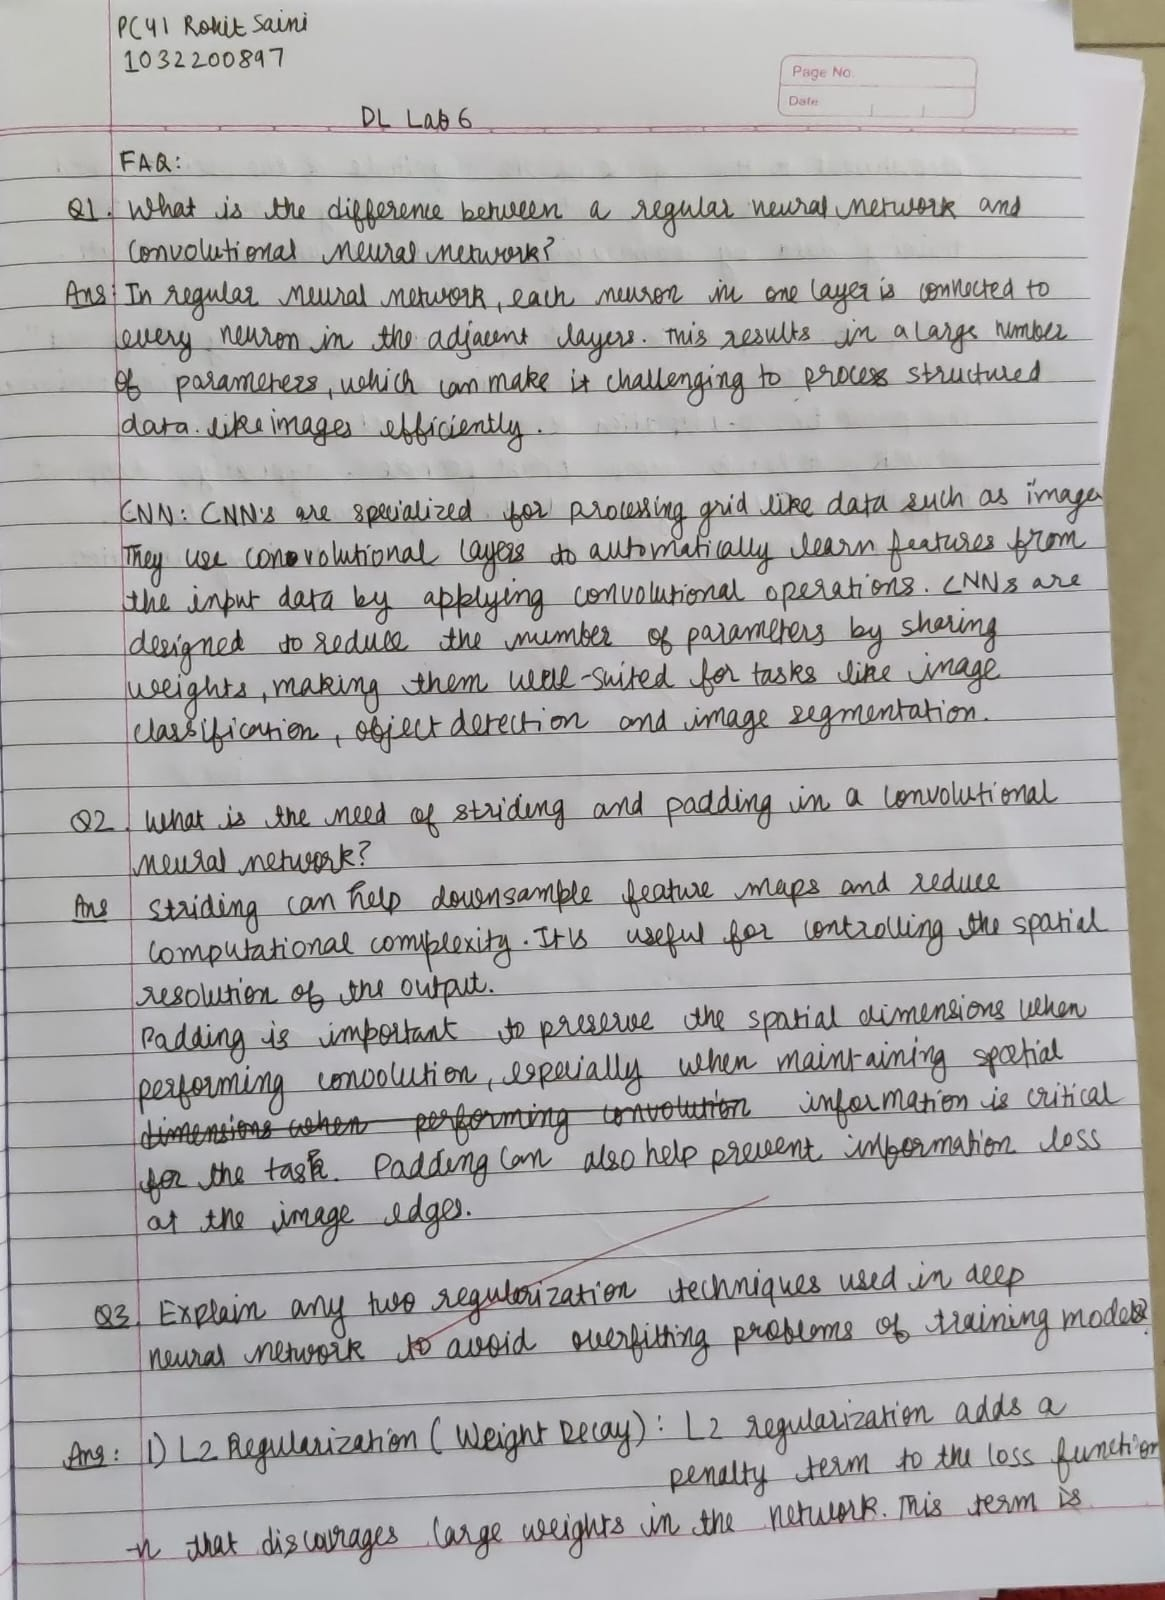 PC41 Rohit Saini
1032200897
Page No.
Date
DL Lab 6
FAQ:
Q1. What is the difference between a regular neural network and
convolutional neural network?
Ans: In regular neural network, each neuron in one layer is connected to
every neuron in the adjacent layers. This results in a large number
of parameters, which can make it challenging to process structured
data. like images efficiently.
CNN: CNN's are specialized for processing grid like data such as image
They use convolutional layers to automatically learn features from
the input data by applying convolutional operations. CNNs are
designed to reduce the number of parameters by sharing
weights, making them well-suited for tasks like image
classification, object detection and image segmentation.
Q2. What is the need of striding and padding in a convolutional
neural network?
Ans striding can help downsample feature maps and reduce
computational complexity. It is useful for controlling the spatial
resolution of the output.
Padding is important to preserve the spatial dimensions when
performing convolution, especially when maintaining spatial
dimensions when performing convolution information is critical
for the task. Padding can also help prevent information loss
at the image edges.
Q3. Explain any two regularization techniques used in deep
neural network to avoid overfitting problems of training models?
Ans: 1) L2 Regularization (Weight Decay): L2 regularization adds a
penalty term to the loss function
-n that discourages large weights in the network. This term is